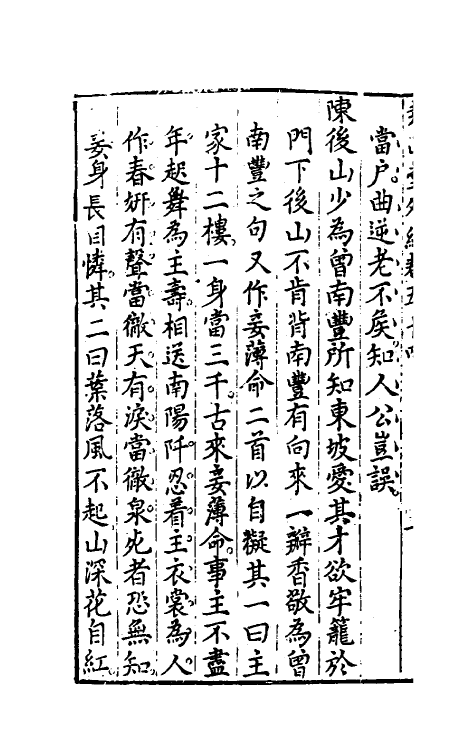 當戶曲逆老不矦知人公豈誤
陳後山少為曾南豐所知東坡愛其才欲牢籠於
門下後山不肯背南豐有向來一辦香敬為曾
南豐之句又作妾薄命二首以自擬其一曰主
家十二樓一身當三千古來妾薄命事主不盡
年起舞為主壽相送南陽阡忍着主衣裳為人
作春妍有聲當徹天有淚當徹泉死者恐無知
妾身長自憐其二曰葉落風不起山深花自紅